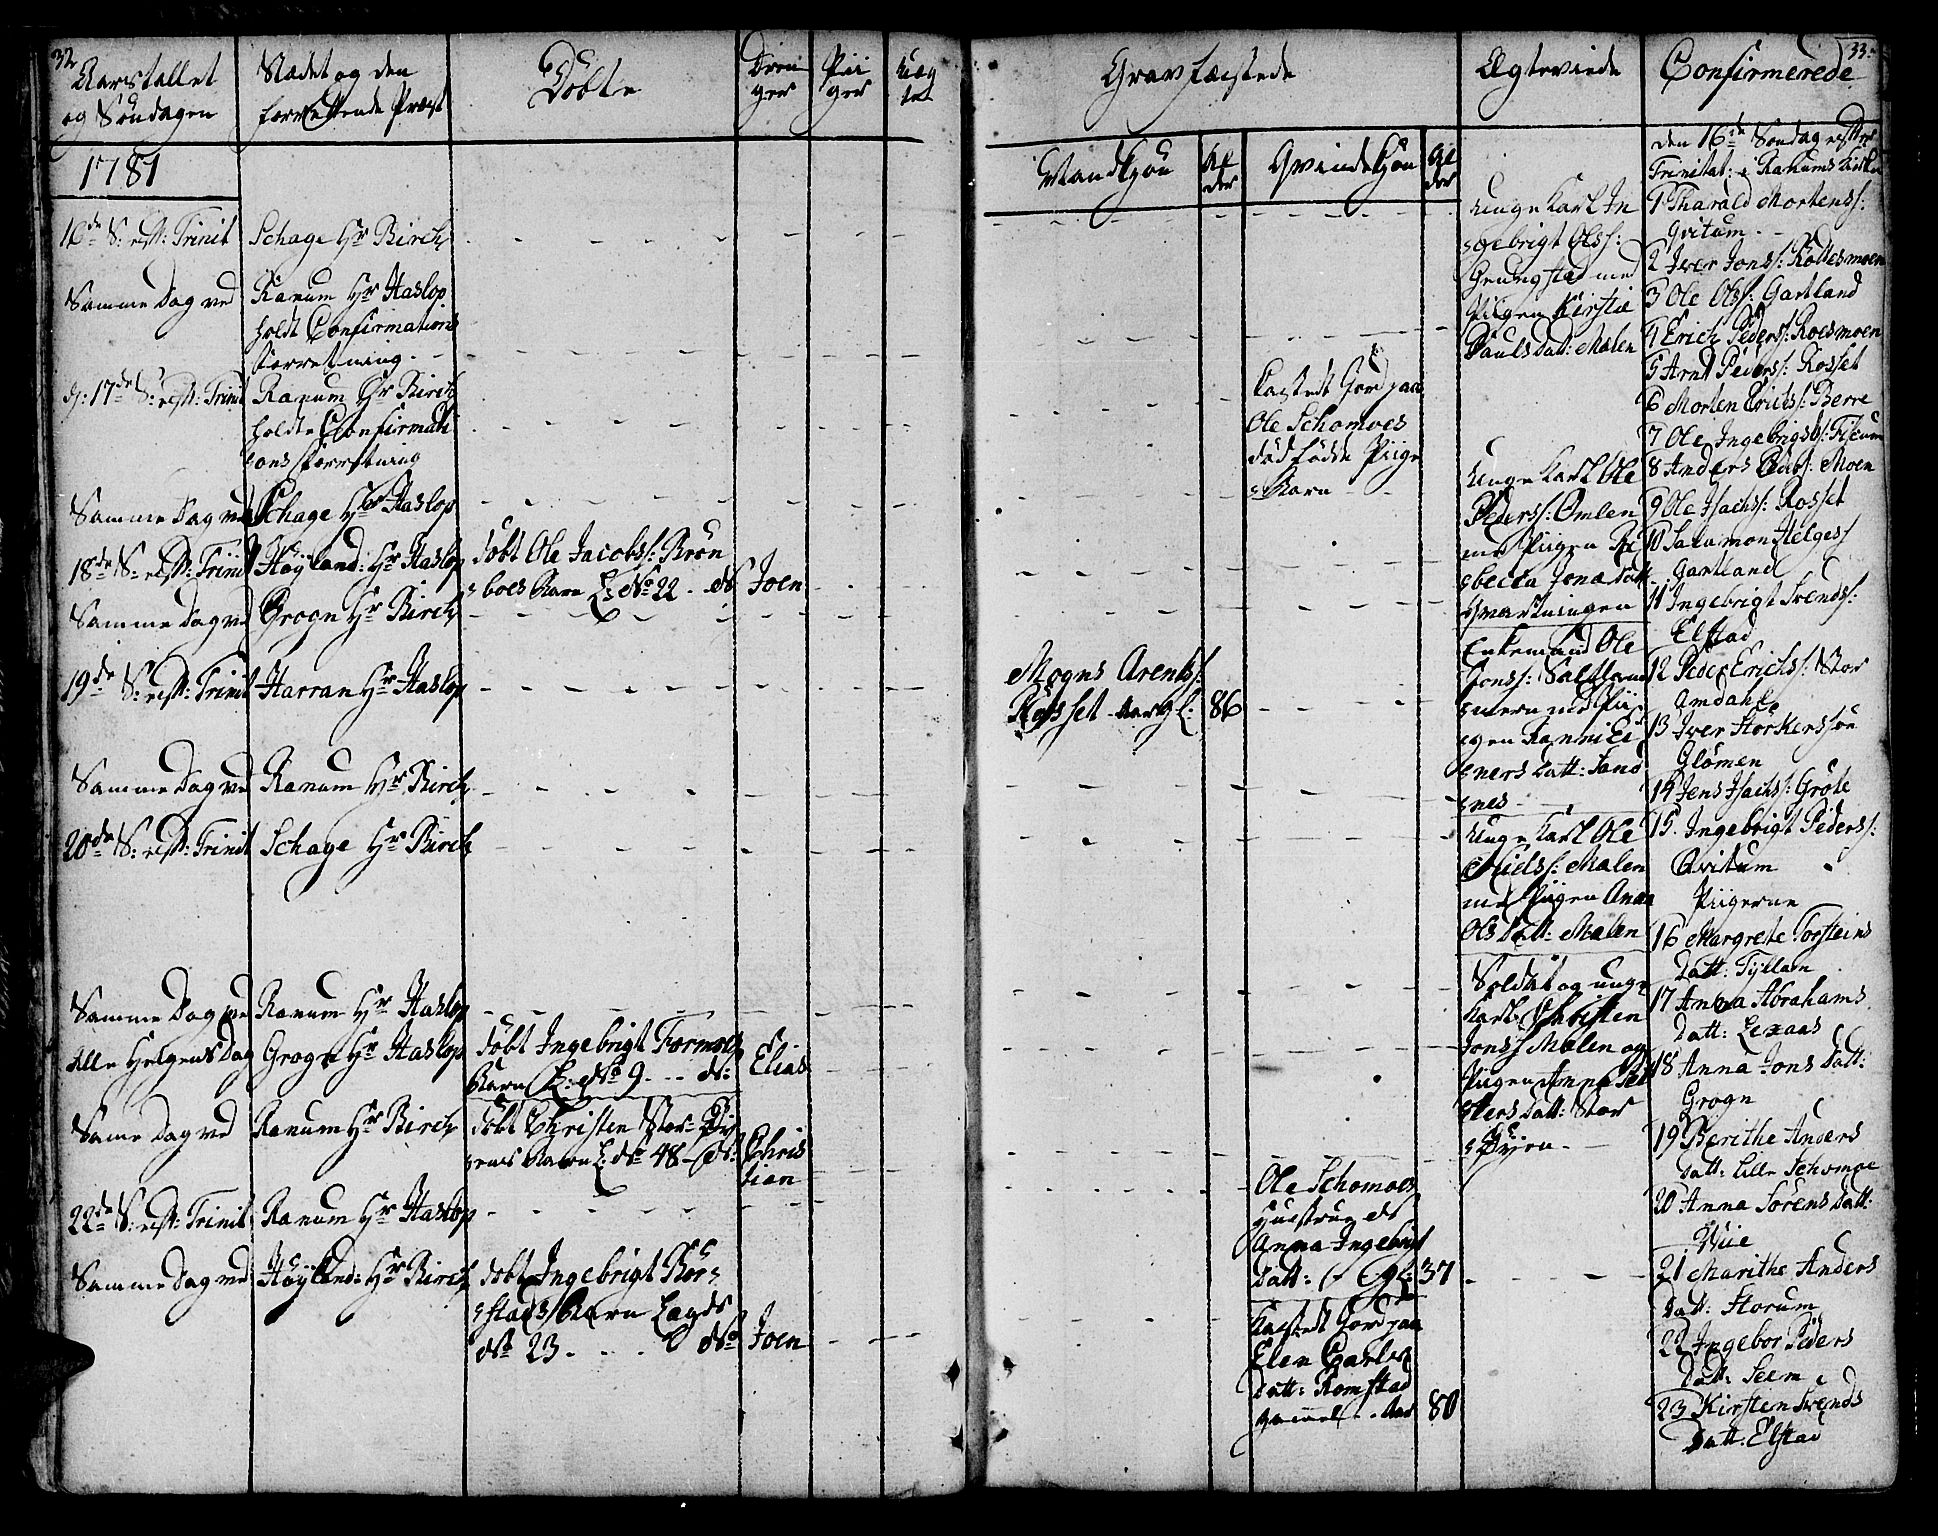 32
Aarstallet
og Søndagen
Stædet og den
forrettende Præst
Døbte
Dren
ger
Pii
ger
1781
16de S: eft: Trinit
Schage Hr Birch
Samme Dag ved
Ranum Hr Haslop
holdt Confirmations
forretning.
d: 17de S: eft: Trinit
Ranum Hr Birch
holdte Confirmati
ons forretning
Samme Dag ved
Schage Hr Haslop
18de S: eft: Trinit
Høyland: Hr Haslop
døbt Ole Jacobss: Brøn
boes Barn L: No 22 - No
Joen
Samme Dag ved
Grogn Hr Birch
19de S: eft: Trinit
Harran Hr Haslop
Samme Dag ved
Ranum Hr Birch
20de S: eft: Trinit
Schage Hr Birch
Samme Dag ved
Ranum Hr Haslop
Alle Helgens Dag
Grogn Hr Haslop
døbt Ingebrigt Formoes
Barn L: No 9 - - - N:
Elias
Same Dag ved
Ranum Hr Birch
døbt Christen Stor-
Barn L: No 48 - N:
Chris
tian
22de S: eft: Trinit
Ranum Hr Haslop
Samme Dag ved
Høyland: Hr Birch
døbt Ingebrigt Bor-
stads Barn Lægds
No 23 - - - No
Joen
33
Gravfæstede
Mandkjøn
Al
der
Qvindekjøn
Al
der
Mogns Arentss:
Rosset - Aar gl:
86
Kastedt Jord paa
Ole Schomoes
død fødde Piige
Barn
Ole Schomoes
Huustrue N
Anna Ingebrigt
Datt: gl:
37
Kastedt Jord paa
Elen Carls
Datt: Romstad
gammel - Aar
80
Ægteviede
Unge Karl In
gebrigt Olss:
Grungstad med
Piigen Kirstie
Pauls Datt: Mælen
Unge Karl Ole
Peders: Omlen
med Piigen Re
becka Jona Datt
Qvartningen
Enkemand Ole
Jonss:
med Pii
gen Ranni Ei
ners Datt: Sand
nes
Unge Karl Ole
Nielss: Mælen
med Piigen Anna
Ols Datt: Mælen
Soldat og unge
Karl Christen
Jonss Mælen og
Piigen Anna
ters Datt: Stor
Øyen
Confirmerede
den 16de Søndag efter
Trinitat: i Ranums Kirke
1 Tharald Mortenss:
Qvitum
2 Iver Jonss: Røttesmoen
3 Ole Olss: Gartland
4 Erich Pederss: Roesmoen
5 Arnt Pederss: Rosset
6 Morten Erichss: Berre
7 Ole Ingebrigtss: Fiscum
8 Anders Moen
9 Ole Isachss: Rosset
10 Salamon Helgess
Gartland
11 Ingebrigt Svendss:
Elstad
12 Peder Erichss: Stor
Amdahl
13 Iver Storkerssøn
Glømen
14 Jens Isachss: Grøte
15. Ingebrigt Pederss:
Qvitum
Piigerne
16 Margrete Torsteins
Datt: Tyllan
17 Anna Abrahams
Datt: Lexaas
18 Anna Jons Datt:
Grogn
19 Berithe Anders
Datt: Lille Schomoe
20 Anna Sørens Datt:
Wiie
21 Marithe Anders
Datt: Florum
22 Ingebor Peders
Datt: Seem
23 Kirsten Svends
Datt: Elstad